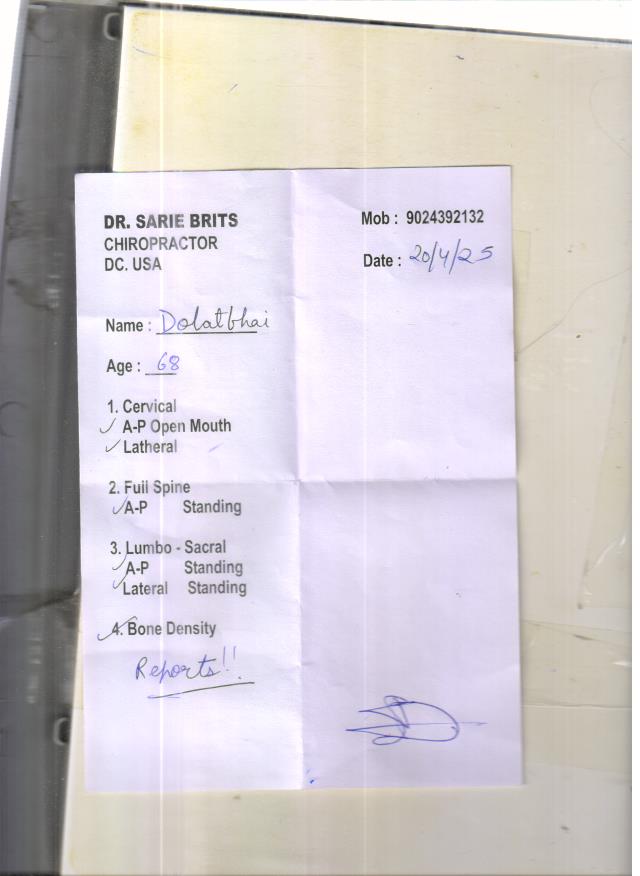 DR. SARIE BRITS
CHIROPRACTOR
DC. USA
Mob : 9024392132
Date : 20/4/25
Name : Dolatbhai
Age : 68
1. Cervical
✓ A-P Open Mouth
✓ Latheral
2. Full Spine
✓ A-P Standing
3. Lumbo - Sacral
✓ A-P Standing
✓ Lateral Standing
✓ 4. Bone Density
Reports!!